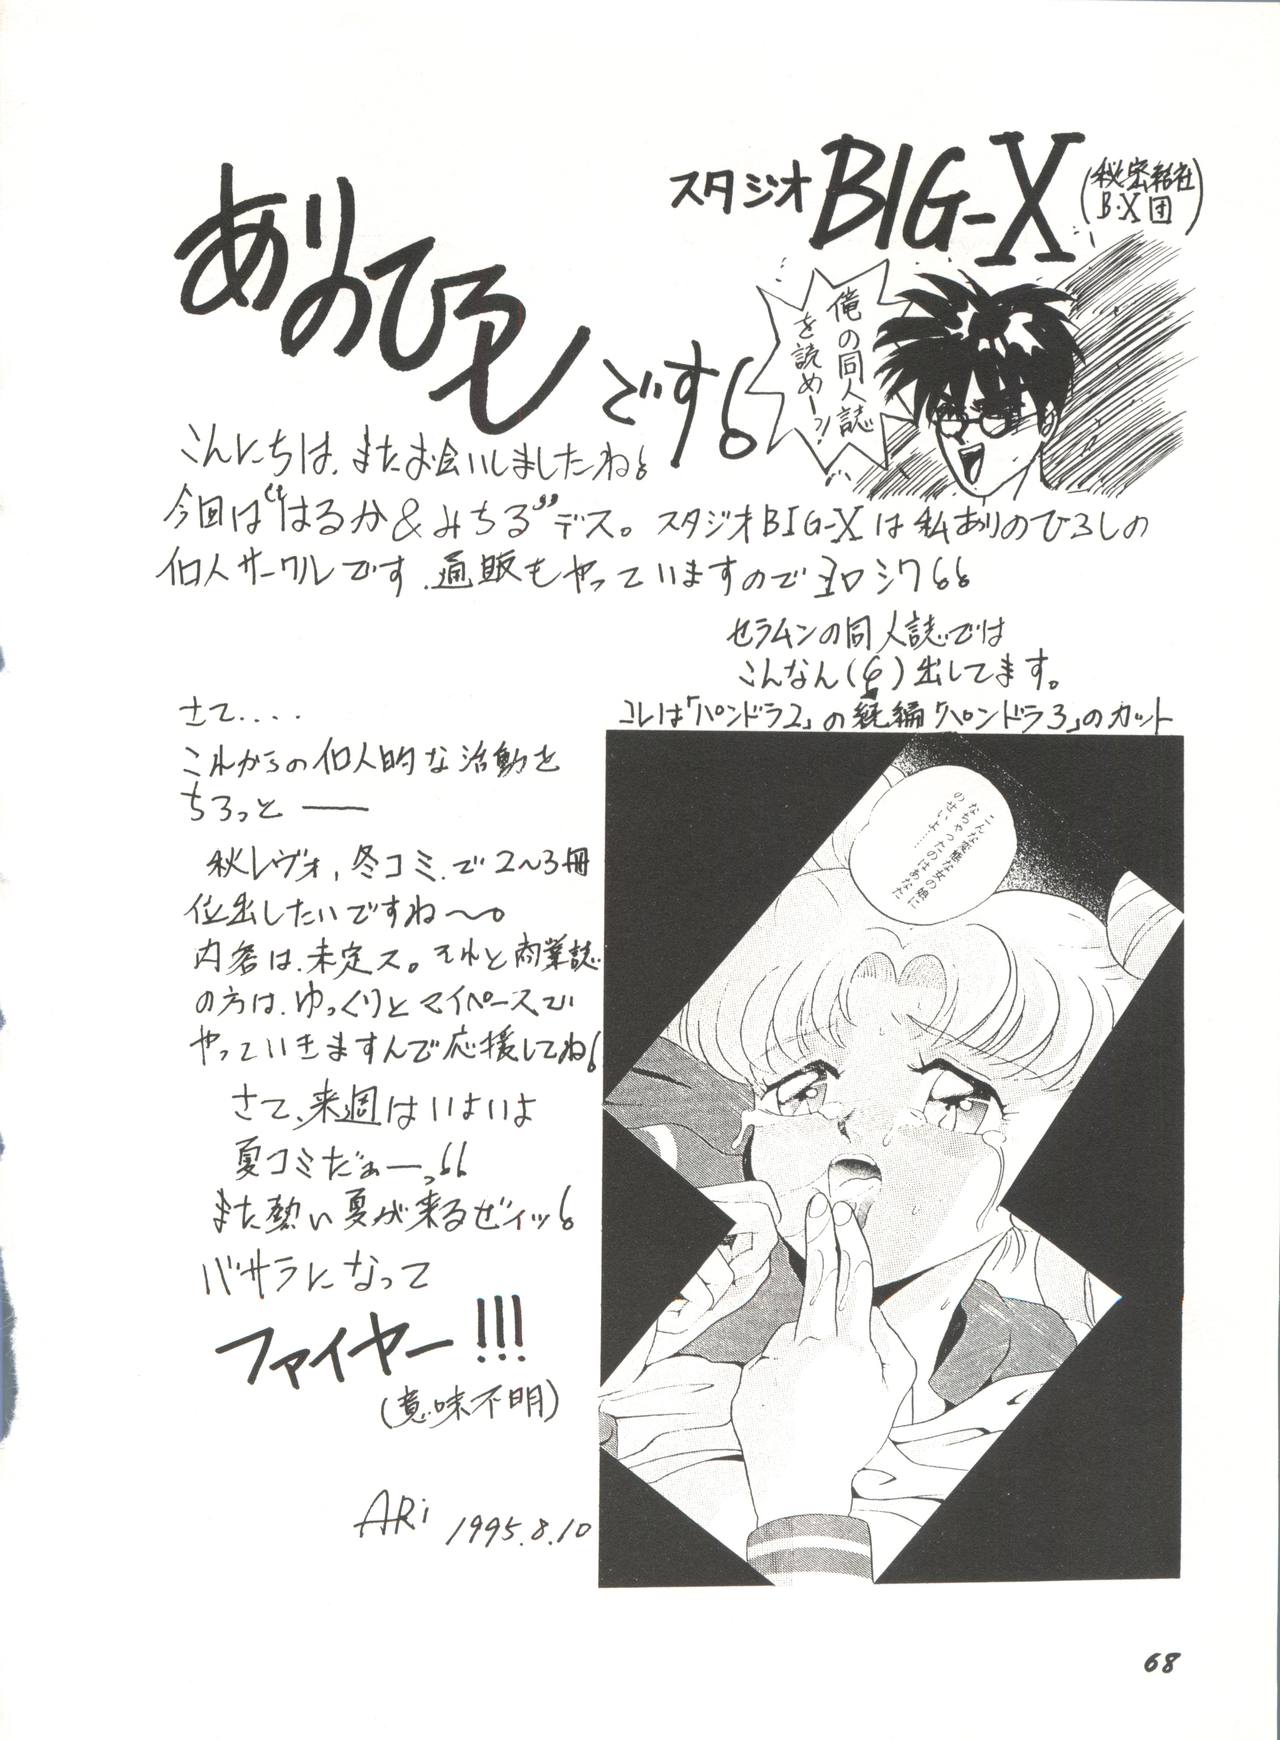 スタジオ BIG-X (秘密結社 B・X団)
ありのひろしです!
俺の同人誌
を読めーッ!
こんにちは、またお会いしましたね!
今回は"はるか&みちる"デス。スタジオBIG-Xは私ありのひろしの
個人サークルです、通販もやっていますのでヨロシク!!
セラムンの同人誌では
こんなん(↓)出してます。
コレは「パンドラ2」の続編「パンドラ3」のカット
さて....
これからの個人的な活動を
ちろっと ――
秋レヴォ、冬コミ、で2〜3冊
位出したいですね〜。
内容は、未定ス。それと商業誌
の方は、ゆっくりとマイペースで
やっていきますんで応援してね!
さて、来週はいよいよ
夏コミだぁーっ!!
また熱い夏が来るぜィッ!
バサラになって
ファイヤー!!!
(意味不明)
ARi 1995.8.10
こんな変態な女の娘に
なちゃったのはあなた
のせいよ……
68